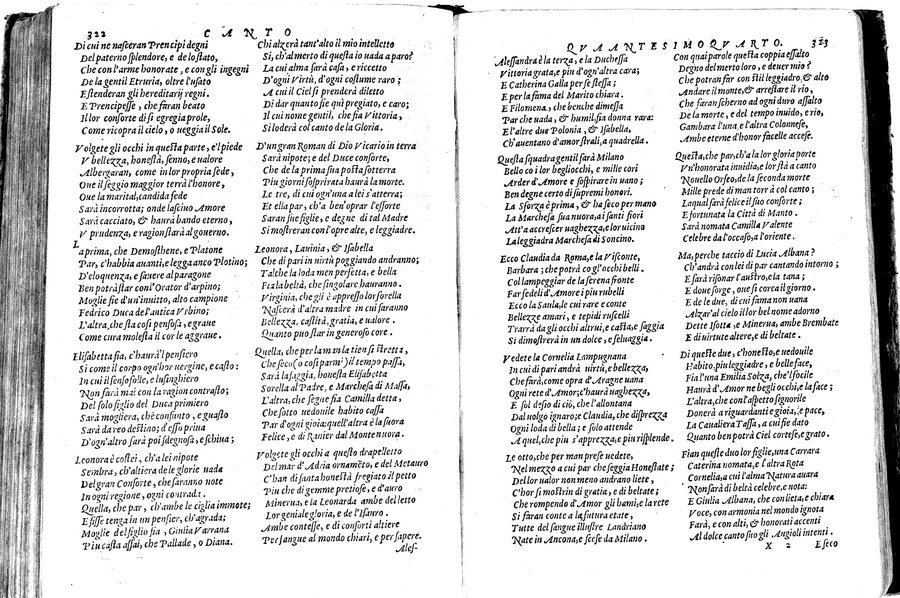 322 CANTO
Di cui ne nasceran Prencipi degni
Del paterno splendore, e de lo stato,
Che con l'arme honorate, e con gli ingegni
De la gentil Etruria, oltre l'usato
Estenderan gli hereditarij regni.
E Principesse, che faran beato
Il lor consorte di sì egregia prole,
Come ricopra il cielo, o ueggia il Sole.
Volgete gli occhi in questa parte, e'l piede
V bellezza, honestà, senno, e ualore
Albergaran, come in lor propria sede,
Oue il seggio maggior terrà l'honore,
Que la marital, candida sede
Sarà incorrotta; onde lasciuo Amore
Sarà cacciato, & haurà bando eterno,
V prudenza, e ragion starà al gouerno.
L
a prima, che Demosthene, e Platone
Par, c'habbia auanti, e legga anco Plotino;
D'eloquenza, e sauere al paragone
Ben potrà star con l'Orator d'arpino;
Moglie fie d'un'inuitto, alto campione
Fedrico Duca de l'antica Vrbino;
L'altra, che sta così pensosa, e graue
Come cura molesta il cor le aggraue.
Elisabetta fia, c'haurà'l pensiero
Sì come il corpo ogn'hor uergine, e casto:
In cui il senso folle, e lusinghiero
Non farà mai con la ragion contrasto;
Del solo figlio del Duca primiero
Sarà mogliera, che consunto, e guasto
Sarà da reo destino; d'esso priua
D'ogn'altro sarà poi sdegnosa, e schiua;
Leonora è costei, ch'a lei nipote
Sembra, ch'altiera de le glorie uada
Del gran Consorte, che saranno note
In ogni regione, ogni contrada.
Quella, che par, ch'ambe le ciglia immote;
E fisse tenga in un pensier, ch'agrada;
Moglie del figlio fia, Giulia Varrana
Piu casta assai, che Pallade, o Diana.
Chi alzerà tant'alto il mio intelletto
Sì, ch'al merto di questa io uada a paro?
La cui alma sarà casa, e ricetto
D'ogni Virtù, d'ogni costume raro;
A cui il Ciel sì prenderà diletto
Di dar quanto fie quà pregiato, e caro;
Il cui nome gentil, che fia Vittoria,
Si loderà col canto de la Gloria.
D'un gran Roman di Dio Vicario in terra
Sarà nipote; e del Duce consorte,
Che de la prima sua posta sotterra
Piu giorni sospirata haurà la morte.
Le tre, di cui ogn'una a lei s'atterra;
Et ella par, ch'a ben'oprar l'essorte
Saran sue figlie, e degne di tal Madre
Si mostreran con l'opre alte, e leggiadre.
Leonora, Lauinia, & Isabella
Che di pari in uirtù poggiando andranno;
Tal che la lode men perfetta, e bella
Fia la beltà, che singolare hauranno.
Virginia, che gli è appresso lor sorella
Nascerà d'altra madre in cui saranno
Bellezza, castità, gratia, e ualore.
Quanto puo star in generoso core.
Quella, che per la man la tien sì stretta,
Che seco (o così parmi) il tempo passa,
Sarà la saggia, honesta Elisabetta
Sorella al Padre, e Marchesa di Massa,
L'altra, che segue fia Camilla detta,
Che sotto uedouile habito cassa
Par d'ogni gioia: quell'altra è la suora
Felice, e di Ranier dal Monte nuora.
Volgete gli occhi a questo drapelletto
Del mar d'Adria ornamēto, e del Metauro
C'han di santa honestà fregiato il petto
Piu che di gemme pretiose, e d'auro
Minerua, e la Leonarda ambe del letto
Lor geniale gloria, e de l'Isauro.
Ambe contesse, e di consorti altiere
Per sangue al mondo chiari, e per sapere.
Ales-
QVAANTESIMOQVARTO. 323
Alessandra è la terza, e la Duchessa
Vittoria grata, e piu d'ogn'altra cara;
E Catherina Galla per se stessa;
E per la fama del Marito chiara.
E Filomena, che benche dimessa
Par che uada, & humil, fia donna rara:
E l'altre due Polonia, & Isabella,
Ch'auentano d'amor strali, a quadrella.
Questa squadra gentil sarà Milano
Bello co i lor begliocchi, e mille cori
Arder d'Amore e sospirare in uano;
Ben degne certo di supremi honori.
La Sforza è prima, & ha seco per mano
La Marchesa sua nuora, ai santi fiori
Att'a accrescer uaghezza, e lor uicino
La leggiadra Marchesa di Soncino.
Ecco Claudia da Roma, e la Visconte,
Barbara; che potrà co gl'occhi belli.
Col lampeggiar de la serena fronte
Far fedeli d'Amore i piu rubelli
Ecco la Saula, le cui rare e conte
Bellezze amari, e tepidi ruscelli
Trarrà da gli occhi altrui, e casta, e saggia
Si dimostrerà in un dolce, e seluaggia.
Vedete la Cornelia Lampugnana
In cui di pari andrà uirtù, e bellezza,
Che farà, come opra d'Aragne uana
Ogni rete d'Amor; c'haurà uaghezza,
E sol desio di ciò, che l'allontana
Dal uolgo ignaro; e Claudia, che disprezza
Ogni loda di bella; e solo attende
A quel, che piu s'apprezza, e piu risplende.
Le otto, che per man prese uedete,
Nel mezzo a cui par che seggia Honestate;
Del lor ualor non meno andran liete,
C'hor si mostrin di gratia, e di beltate;
Che rompendo d'Amor gli hami, e la rete
Si faran conte a la futura etate,
Tutte del sangue illustre Landriano
Nate in Ancona, e scese da Milano.
Con quai parole questa coppia essalto
Degno del merto loro, e deuer mio?
Che potran far con stil leggiadro, & alto
Andare il monte, & arrestare il rio,
Che faran scherno ad ogni duro assalto
De la morte, e del tempo inuido, e rio,
Gambara l'una, e l'altra Colonnese,
Ambe eterne d'honor facelle accese.
Questa, che par, ch'a la lor gloria porte
Vn'honorata inuidia, e lor stà a canto
Nouello Orfeo, de la seconda morte
Mille prede di man torr à col canto;
La qual farà felice il suo consorte;
E fortunata la Città di Manto.
Sarà nomata Camilla Valente
Celebre da l'occaso, a l'oriente.
Ma, perche taccio di Lucia Albana?
Ch'andrà con lei di par cantando intorno;
E farà risonar l'austro, e la tana;
E doue sorge, oue si corca il giorno.
E de le due, di cui fama non uana
Alzar'al cielo il lor bel nome adorno
Dette Isotta, e Minerua, ambe Brembate
E di uirtute altere, e di beltate.
Di queste due, c'honesto, e uedouile
Habito, piu leggiadre, e belle face,
Fia l'una Emilia Solza, che'l focile
Haurà d'Amor ne begli occhi, e la face;
L'altra, che con l'aspetto signorile
Donerà a riguardanti e gioia, e pace,
La Caualiera Tassa, a cui fie dato
Quanto ben potrà Ciel cortese, e grato.
Fian queste due lor figlie, una Carrara
Caterina nomata, e l'altra Rota
Cornelia, a cui l'alma Natura auara
Non farà di beltà celebre, e nota:
E Giulia Albana, che con lieta, e chiara
Voce, con armonia nel mondo ignota
Farà, e con alti, & honorati accenti
Al dolce canto suo gli Angioli intenti.
X 2 E seco